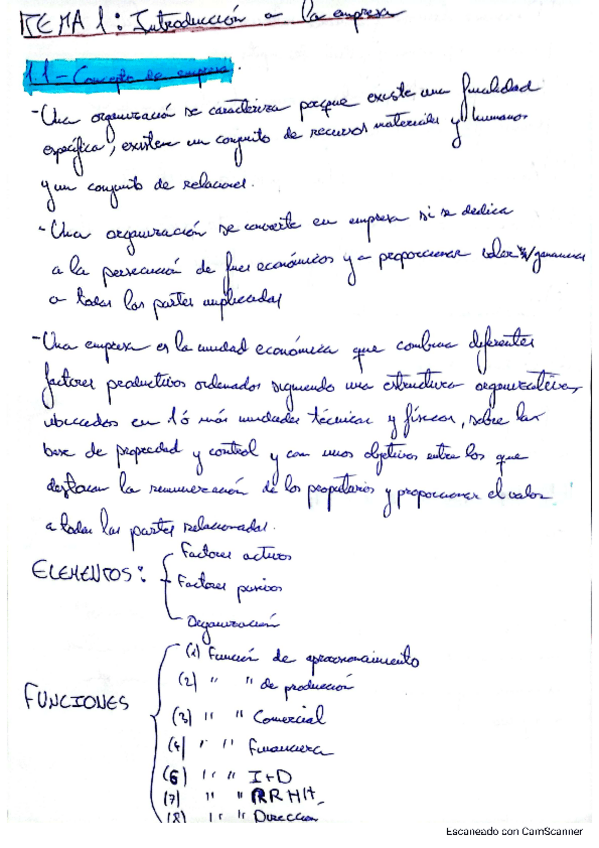 TEMA 1: Introducción a la empresa
1.1 - Concepto de empresa.
- Una organización se caracteriza porque existe una finalidad
específica, existen un conjunto de recursos materiales y humanos
y un conjunto de relaciones.
- Una organización se convierte en empresa si se dedica
a la persecución de fines económicos y a proporcionar valor y/ganancias
a todas las partes implicadas
- Una empresa es la unidad económica que combina diferentes
factores productivos ordenados siguiendo una estructura organizativa,
ubicados en 1 ó más unidades técnicas y físicas, sobre la
base de propiedad y control y con unos objetivos entre los que
destacan la remuneración de los propietarios y proporcionar el valor
a todas las partes relacionadas.
ELEMENTOS:
Factores activos
Factores pasivos
Organización
FUNCIONES
(1) Función de aprovisionamiento
(2) " " de producción
(3) " " Comercial
(4) " " Financiera
(6) " " I+D
(7) " " RRHH
(8) " " Dirección
Escaneado con CamScanner